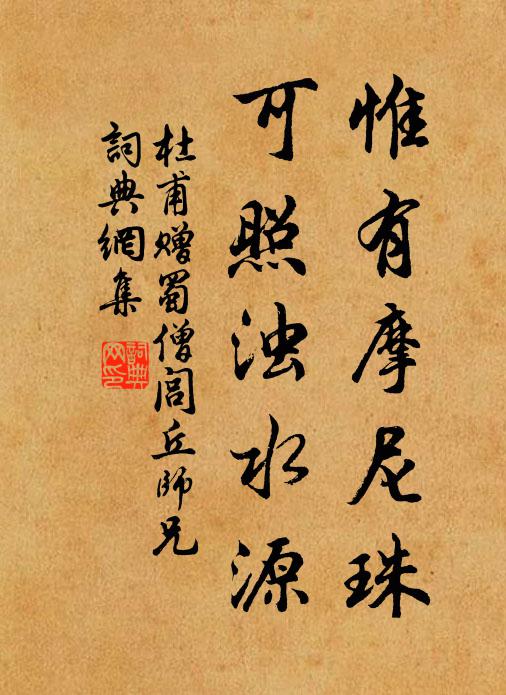 惟有摩尼珠
可照浊水源
杜甫赠蜀僧闾丘师兄
詞典網集
詞典
网印